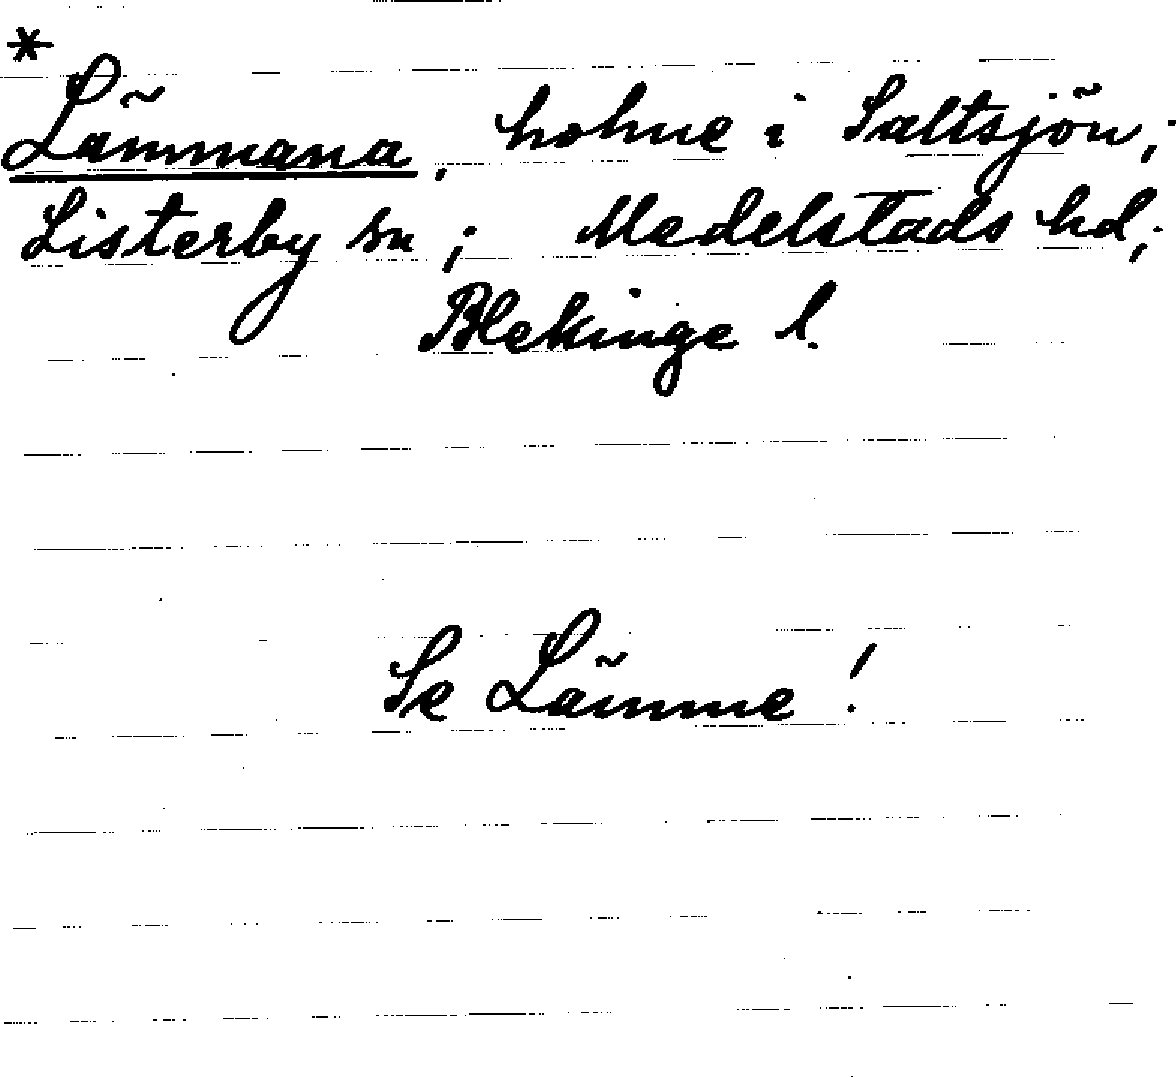 *
Lämmana, holme i Saltsjön;
Listerby sn; Medelstads hd;
Blekinge l.
Se Lämme!